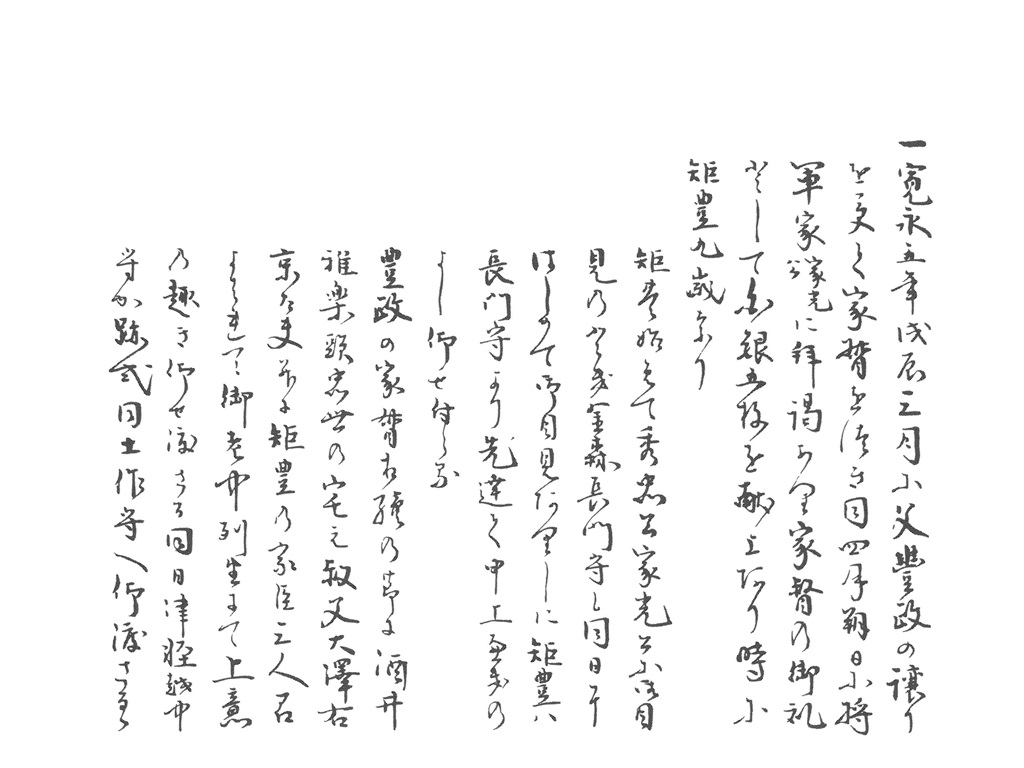 一寛永五年戊辰三月に父豊政の譲り
を受く家督を続き同四月朔日に将
軍家家光に拝謁あり家督の御礼
として白銀五枚を献上なり時に
矩豊九歳なり
矩豊始めて秀忠公家光公に御目
見のとき金森長門守も同日に
はしめて御目見ありしに矩豊ハ
長門守より先達て申上へきの
よし仰せ付らる
豊政の家督相続の節は酒井
雅楽頭忠世の宅え叔父大澤右
京大夫并に矩豊の家臣三人召
よられて御老中列坐にて上意
の趣き仰せ渡さる同日津軽越中
守か跡式同土佐守へ仰渡さるゝ